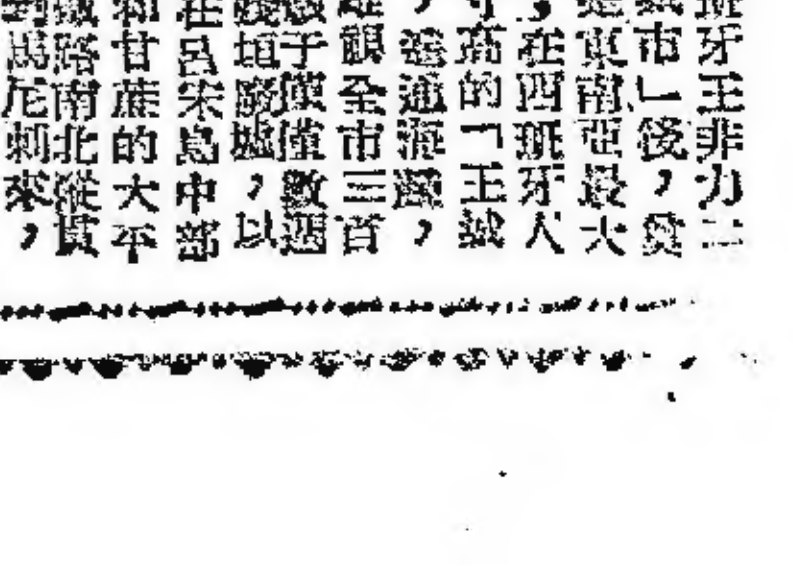 班牙王非力二
城市」後，貧
是東南亞最大
，在西班牙人
寸高的「王城
，遙通海灣，
雄視全市三首
于僅僅數週
殘垣廢墟，以
在呂宋島中部
和甘蔗的大平
鐵路南北縱貫
到馬尼剌來，